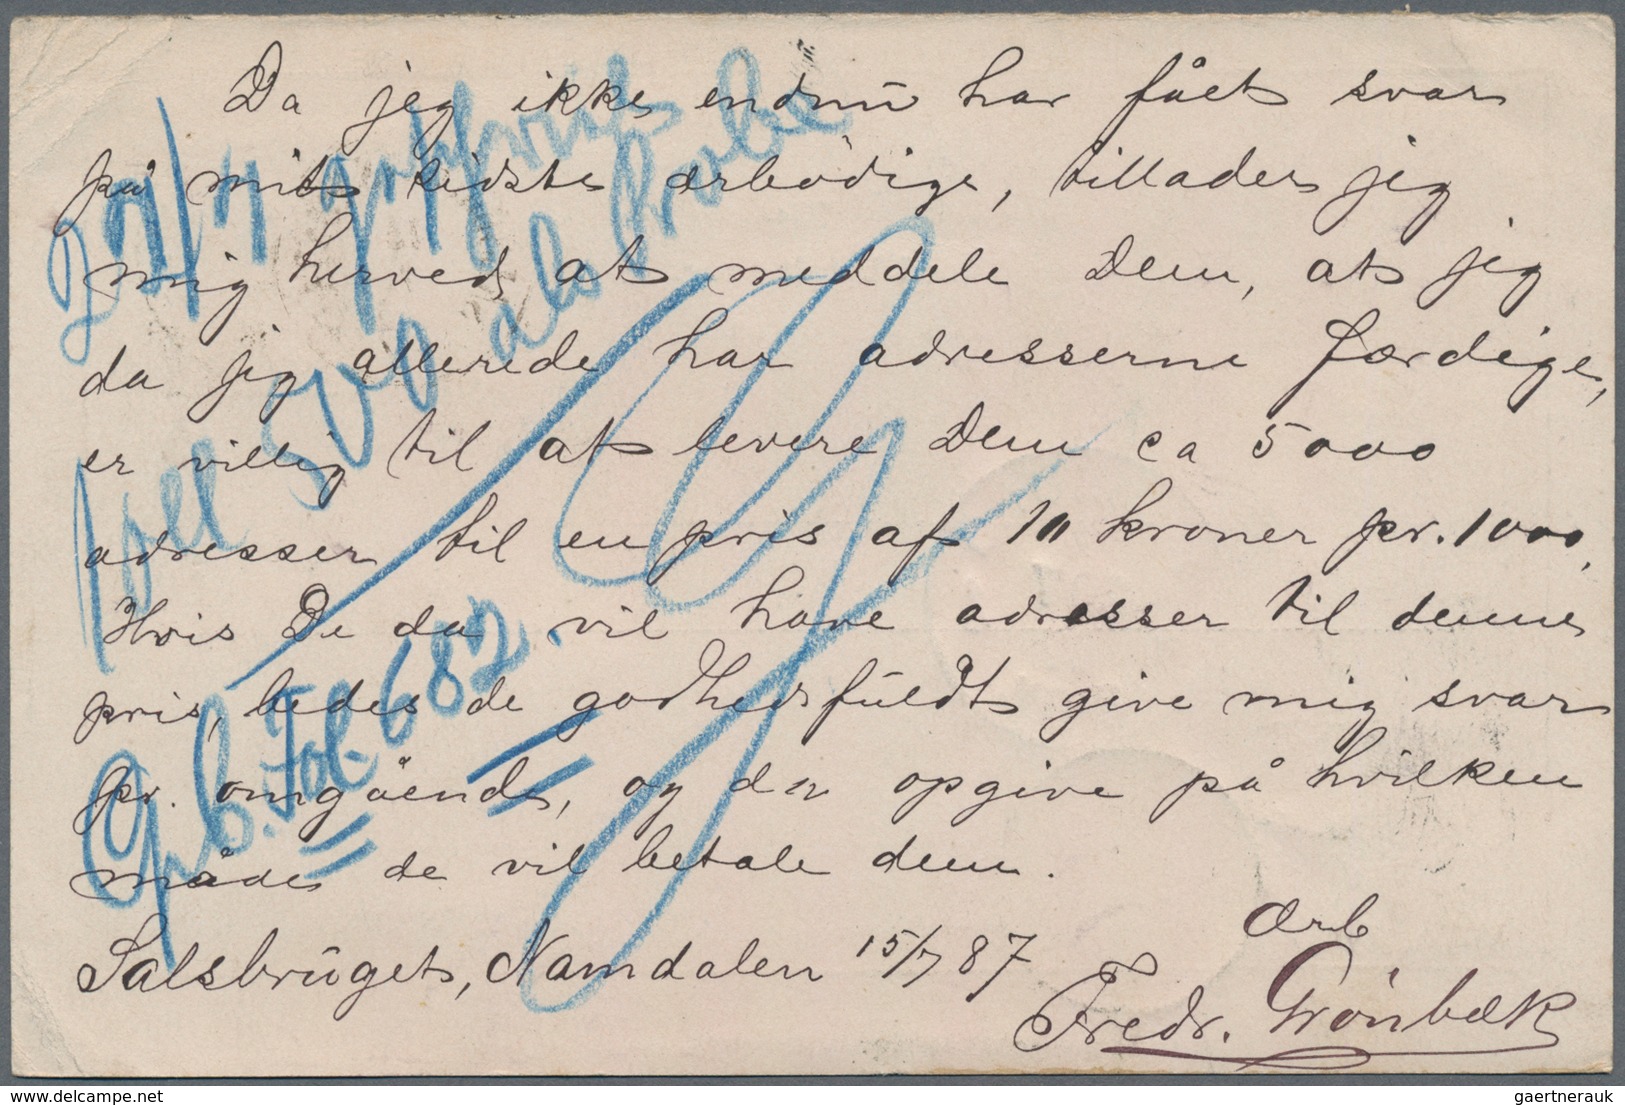 Da jeg ikke endnu har fået svar
på mit sidste ærbødige, tillader jeg
mig herved at meddele Dem, at jeg
da jeg allerede har adresserne færdige,
er villig til at levere Dem ca 5000
adresser til en pris af 10 kroner pr. 1000.
Hvis De da vil have adresser til denne
pris, bedes de godhedsfuldt give mig svar
pr. omgående, og da opgive på hvilken
måde de vil betale dem.
Salsbruget, Namdalen 15/7 87
Ærb
Fredr. Grönbæk
500 als Probe
Gb. Fol. 682.
www.delcampe.net
gaertnerauk